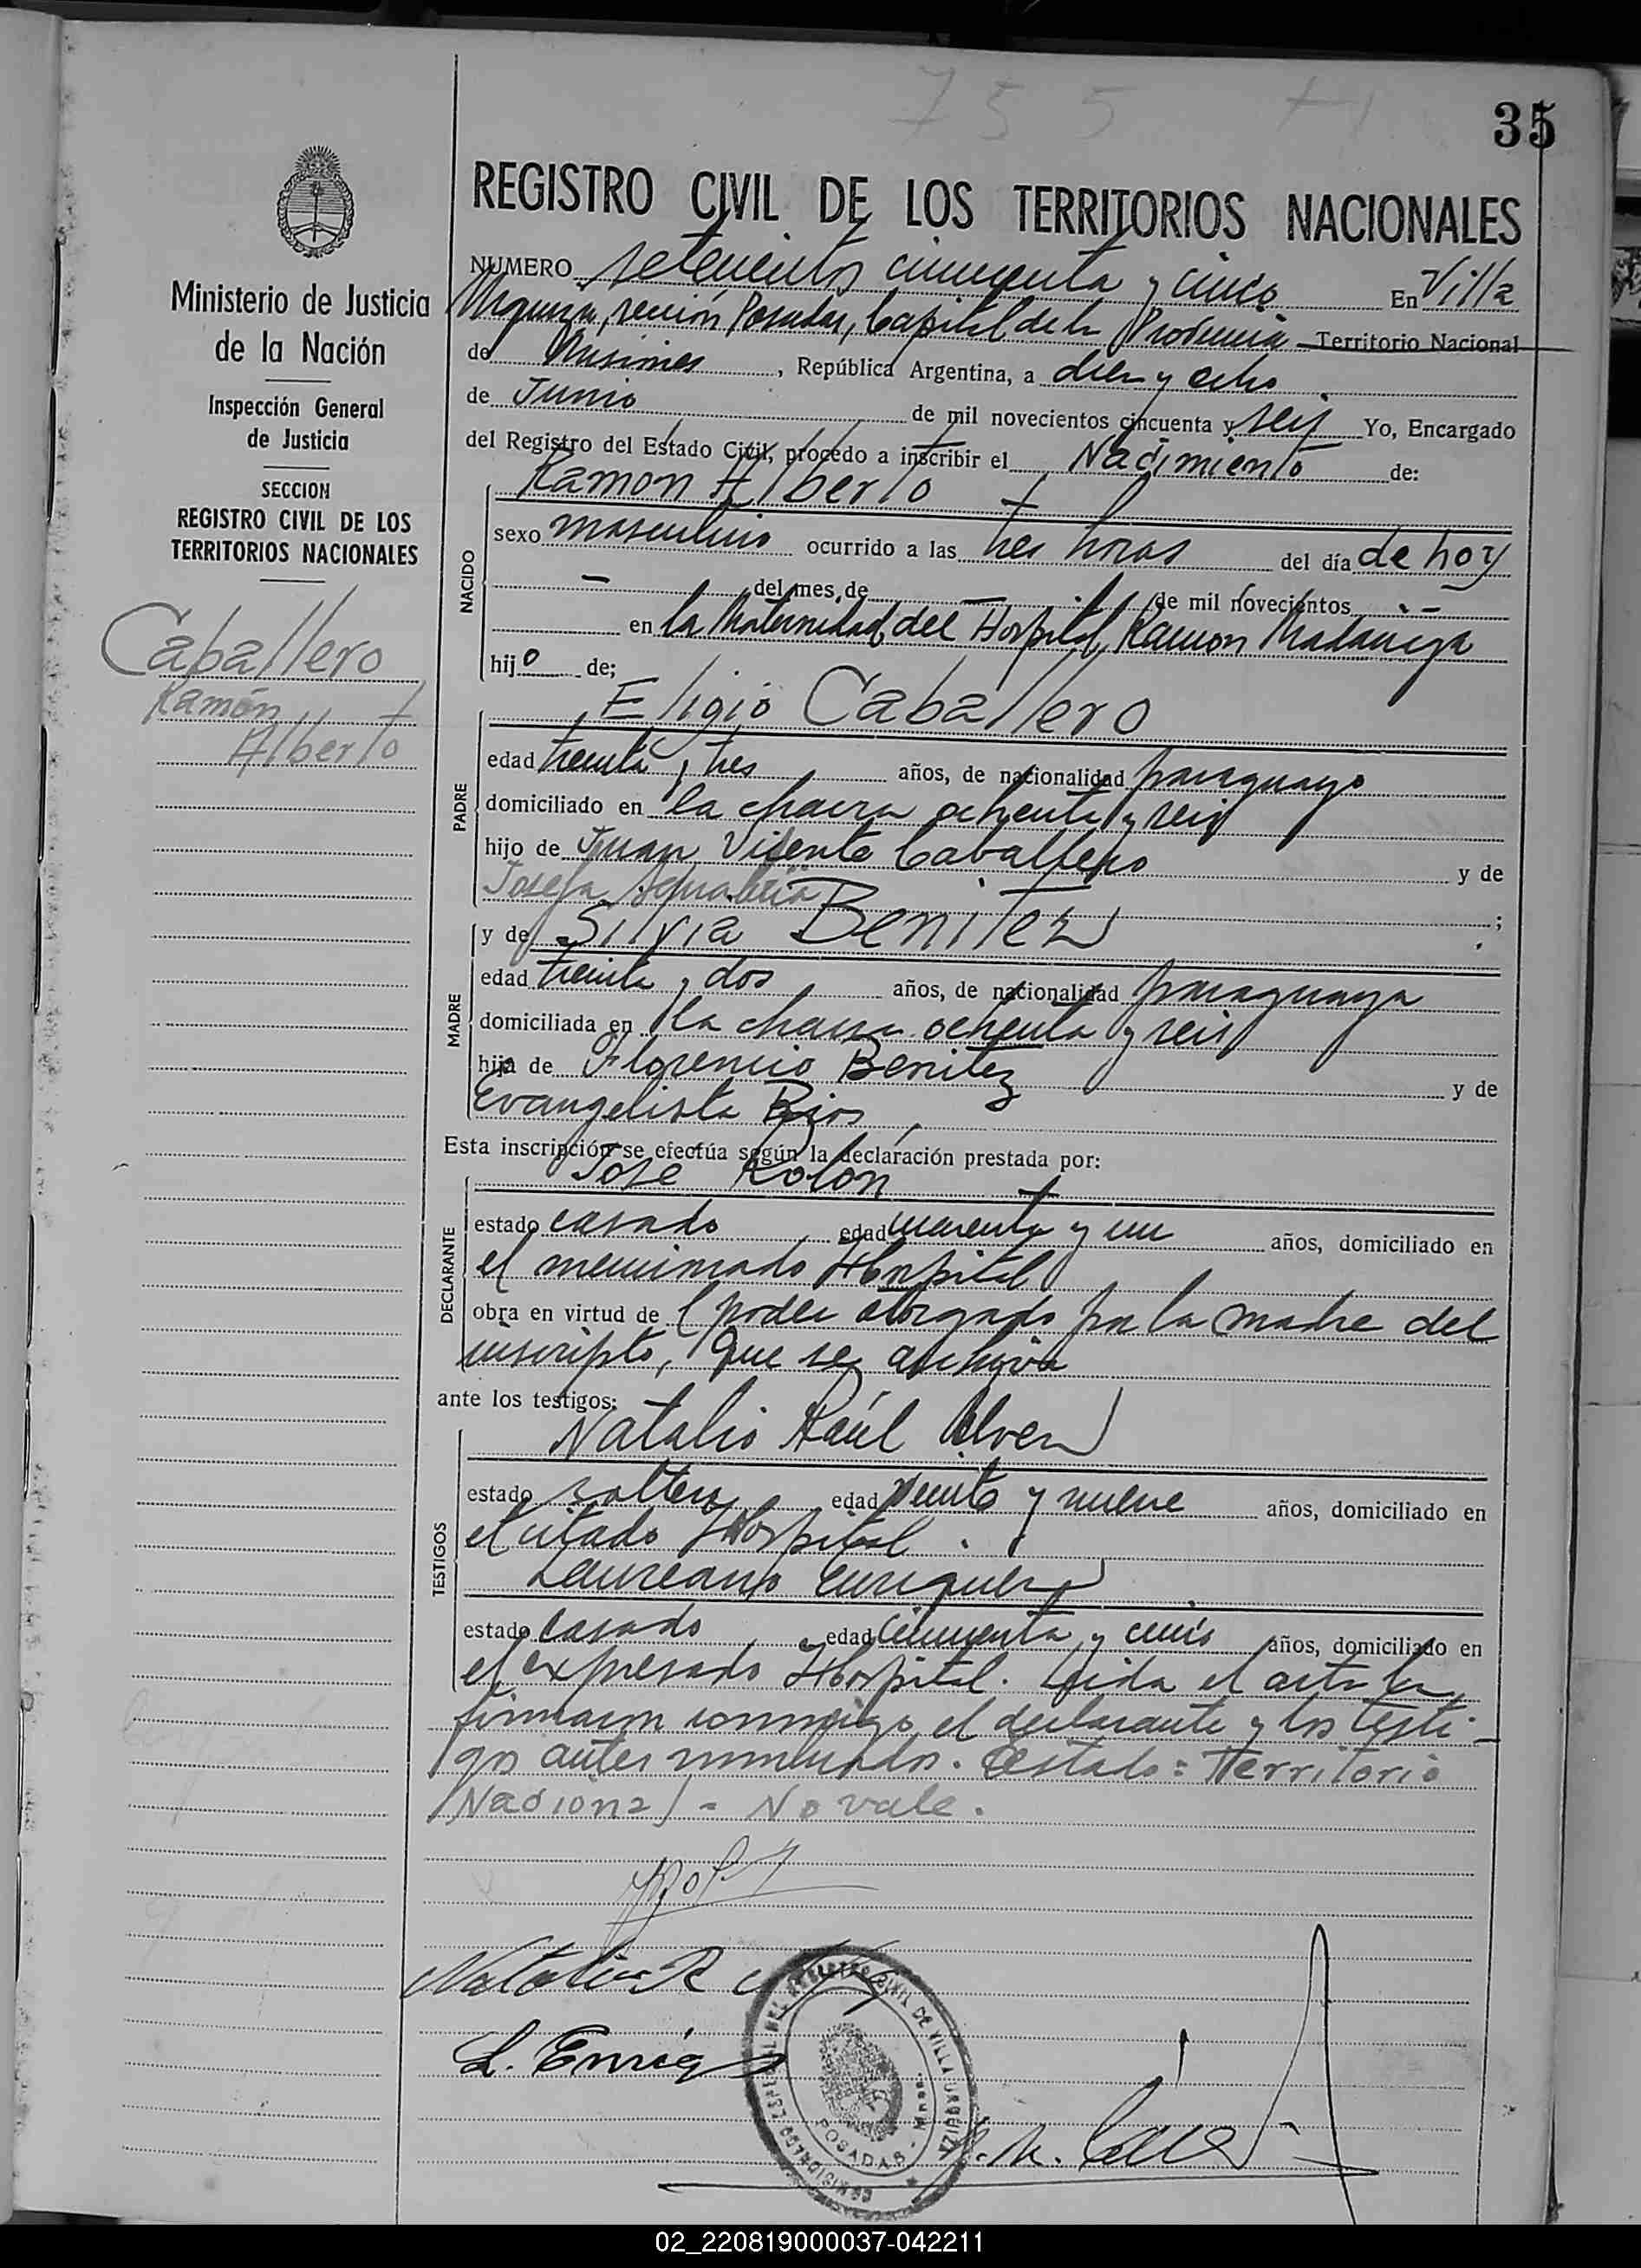 755
35
REGISTRO CIVIL DE LOS TERRITORIOS NACIONALES
Ministerio de Justicia
de la Nación
Inspección General
de Justicia
SECCION
REGISTRO CIVIL DE LOS
TERRITORIOS NACIONALES
Caballero
Ramón
Alberto
NUMERO setecientos cincuenta y cinco En Villa
Urquiza, sección Posadas, Capital de la Provincia Territorio Nacional
de Misiones, República Argentina, a diez y ocho
de Junio de mil novecientos cincuenta y seis Yo, Encargado
del Registro del Estado Civil, procedo a inscribir el Nacimiento de:
NACIDO
Ramon Alberto
sexo masculino ocurrido a las tres horas del día de hoy
— del mes de — de mil novecientos —
en la Maternidad del Hospital Ramon Madariaga
hijo de;
PADRE
Eligio Caballero
edad treinta y tres años, de nacionalidad paraguayo
domiciliado en la chacra ochenta y seis
hijo de Juan Vicente Caballero y de
Josefa ;
MADRE
y de Silvia Benitez
edad treinta y dos años, de nacionalidad paraguaya
domiciliada en la chacra ochenta y seis
hija de Florencio Benitez y de
Evangelista Rios
Esta inscripción se efectúa según la declaración prestada por:
DECLARANTE
Jose Kolon
estado casado edad cuarenta y un años, domiciliado en
el mencionado Hospital
obra en virtud del poder otorgado por la madre del
inscripto, que se archiva
ante los testigos:
TESTIGOS
Natalio Raúl
estado soltero edad veinte y nueve años, domiciliado en
el citado Hospital.
Laureano Enriquez
estado casado edad cincuenta y cinco años, domiciliado en
el expresado Hospital. Leida el acta la
firmaron conmigo el declarante y los testi-
gos antes nombrados. Testado: Territorio
Nacional - No vale.
Natalio R
L. Enriq
COMISIONADO ESPECIAL DEL REGISTRO CIVIL DE VILLA URQUIZA
POSADAS - Mnes.
02_220819000037-042211